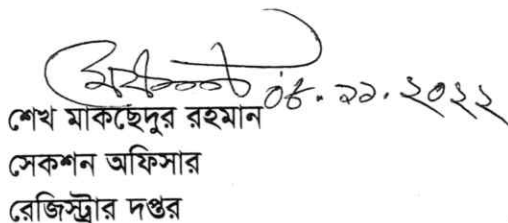 ০৮.১১.২০২২
শেখ মাকছেদুর রহমান
সেকশন অফিসার
রেজিস্ট্রার দপ্তর